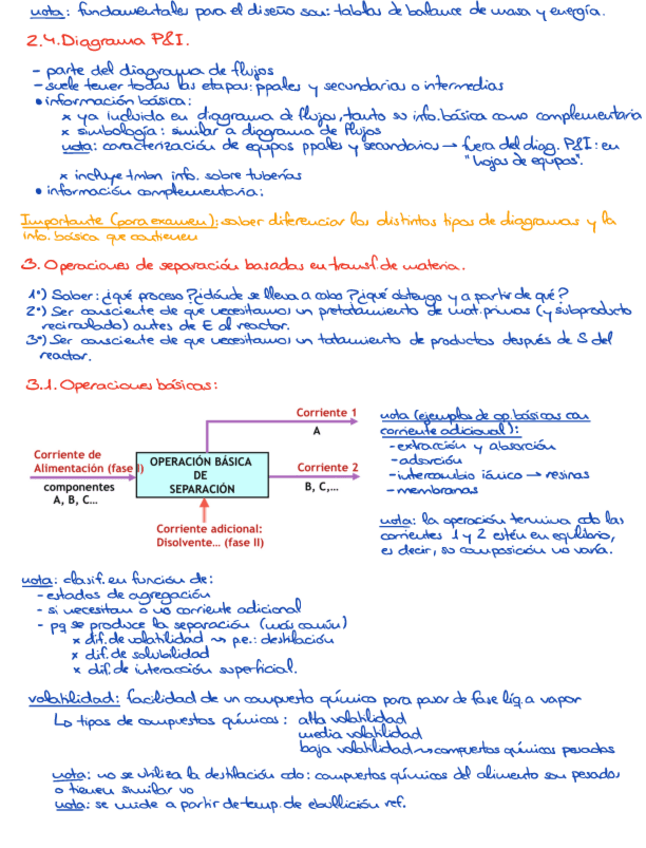 nota: fundamentales para el diseño son: tablas de balance de masa y energía.
2.4. Diagrama P&I.
- parte del diagrama de flujos
- suele tener todas las etapas: ppales y secundarias o intermedias
• información básica:
x ya incluida en diagrama de flujos, tanto su info. básica como complementaria
x simbología: similar a diagrama de flujos
nota: caracterización de equipos ppales y secundarios → fuera del diag. P&I: en
"hojas de equipos".
x incluye tmbn info. sobre tuberías
• información complementaria:
Importante (para examen): saber diferenciar los distintos tipos de diagramas y la
info. básica que contienen
3. Operaciones de separación basadas en transf. de materia.
1º) Saber: ¿qué proceso? ¿dónde se lleva a cabo? ¿qué obtengo y a partir de qué?
2º) Ser consciente de que necesitamos un pretratamiento de mat. primas (y subproducto
recirculado) antes de E al reactor.
3º) Ser consciente de que necesitamos un tratamiento de productos después de S del
reactor.
3.1. Operaciones básicas:
Corriente 1
A
Corriente de
Alimentación (fase I)
componentes
A, B, C...
OPERACIÓN BÁSICA
DE
SEPARACIÓN
Corriente 2
B, C,...
Corriente adicional:
Disolvente... (fase II)
nota (ejemplos de op. básicas con
corriente adicional):
- extracción y absorción
- adsorción
- intercambio iónico → resinas
- membranas
nota: la operación termina cdo las
corrientes 1 y 2 estén en equilibrio,
es decir, su composición no varía.
nota: clasif. en función de:
- estados de agregación
- si necesitan o no corriente adicional
- pq se produce la separación (más común)
x dif. de volatilidad ⤳ p.e.: destilación
x dif. de solubilidad
x dif. de interacción superficial.
volatilidad: facilidad de un compuesto químico para pasar de fase líq. a vapor
↳ tipos de compuestos químicos: alta volatilidad
media volatilidad
baja volatilidad ⤳ compuestos químicos pesados
nota: no se utiliza la destilación cdo: compuestos químicos del alimento son pesados
o tienen similar vo
nota: se mide a partir de temp. de ebullición ref.